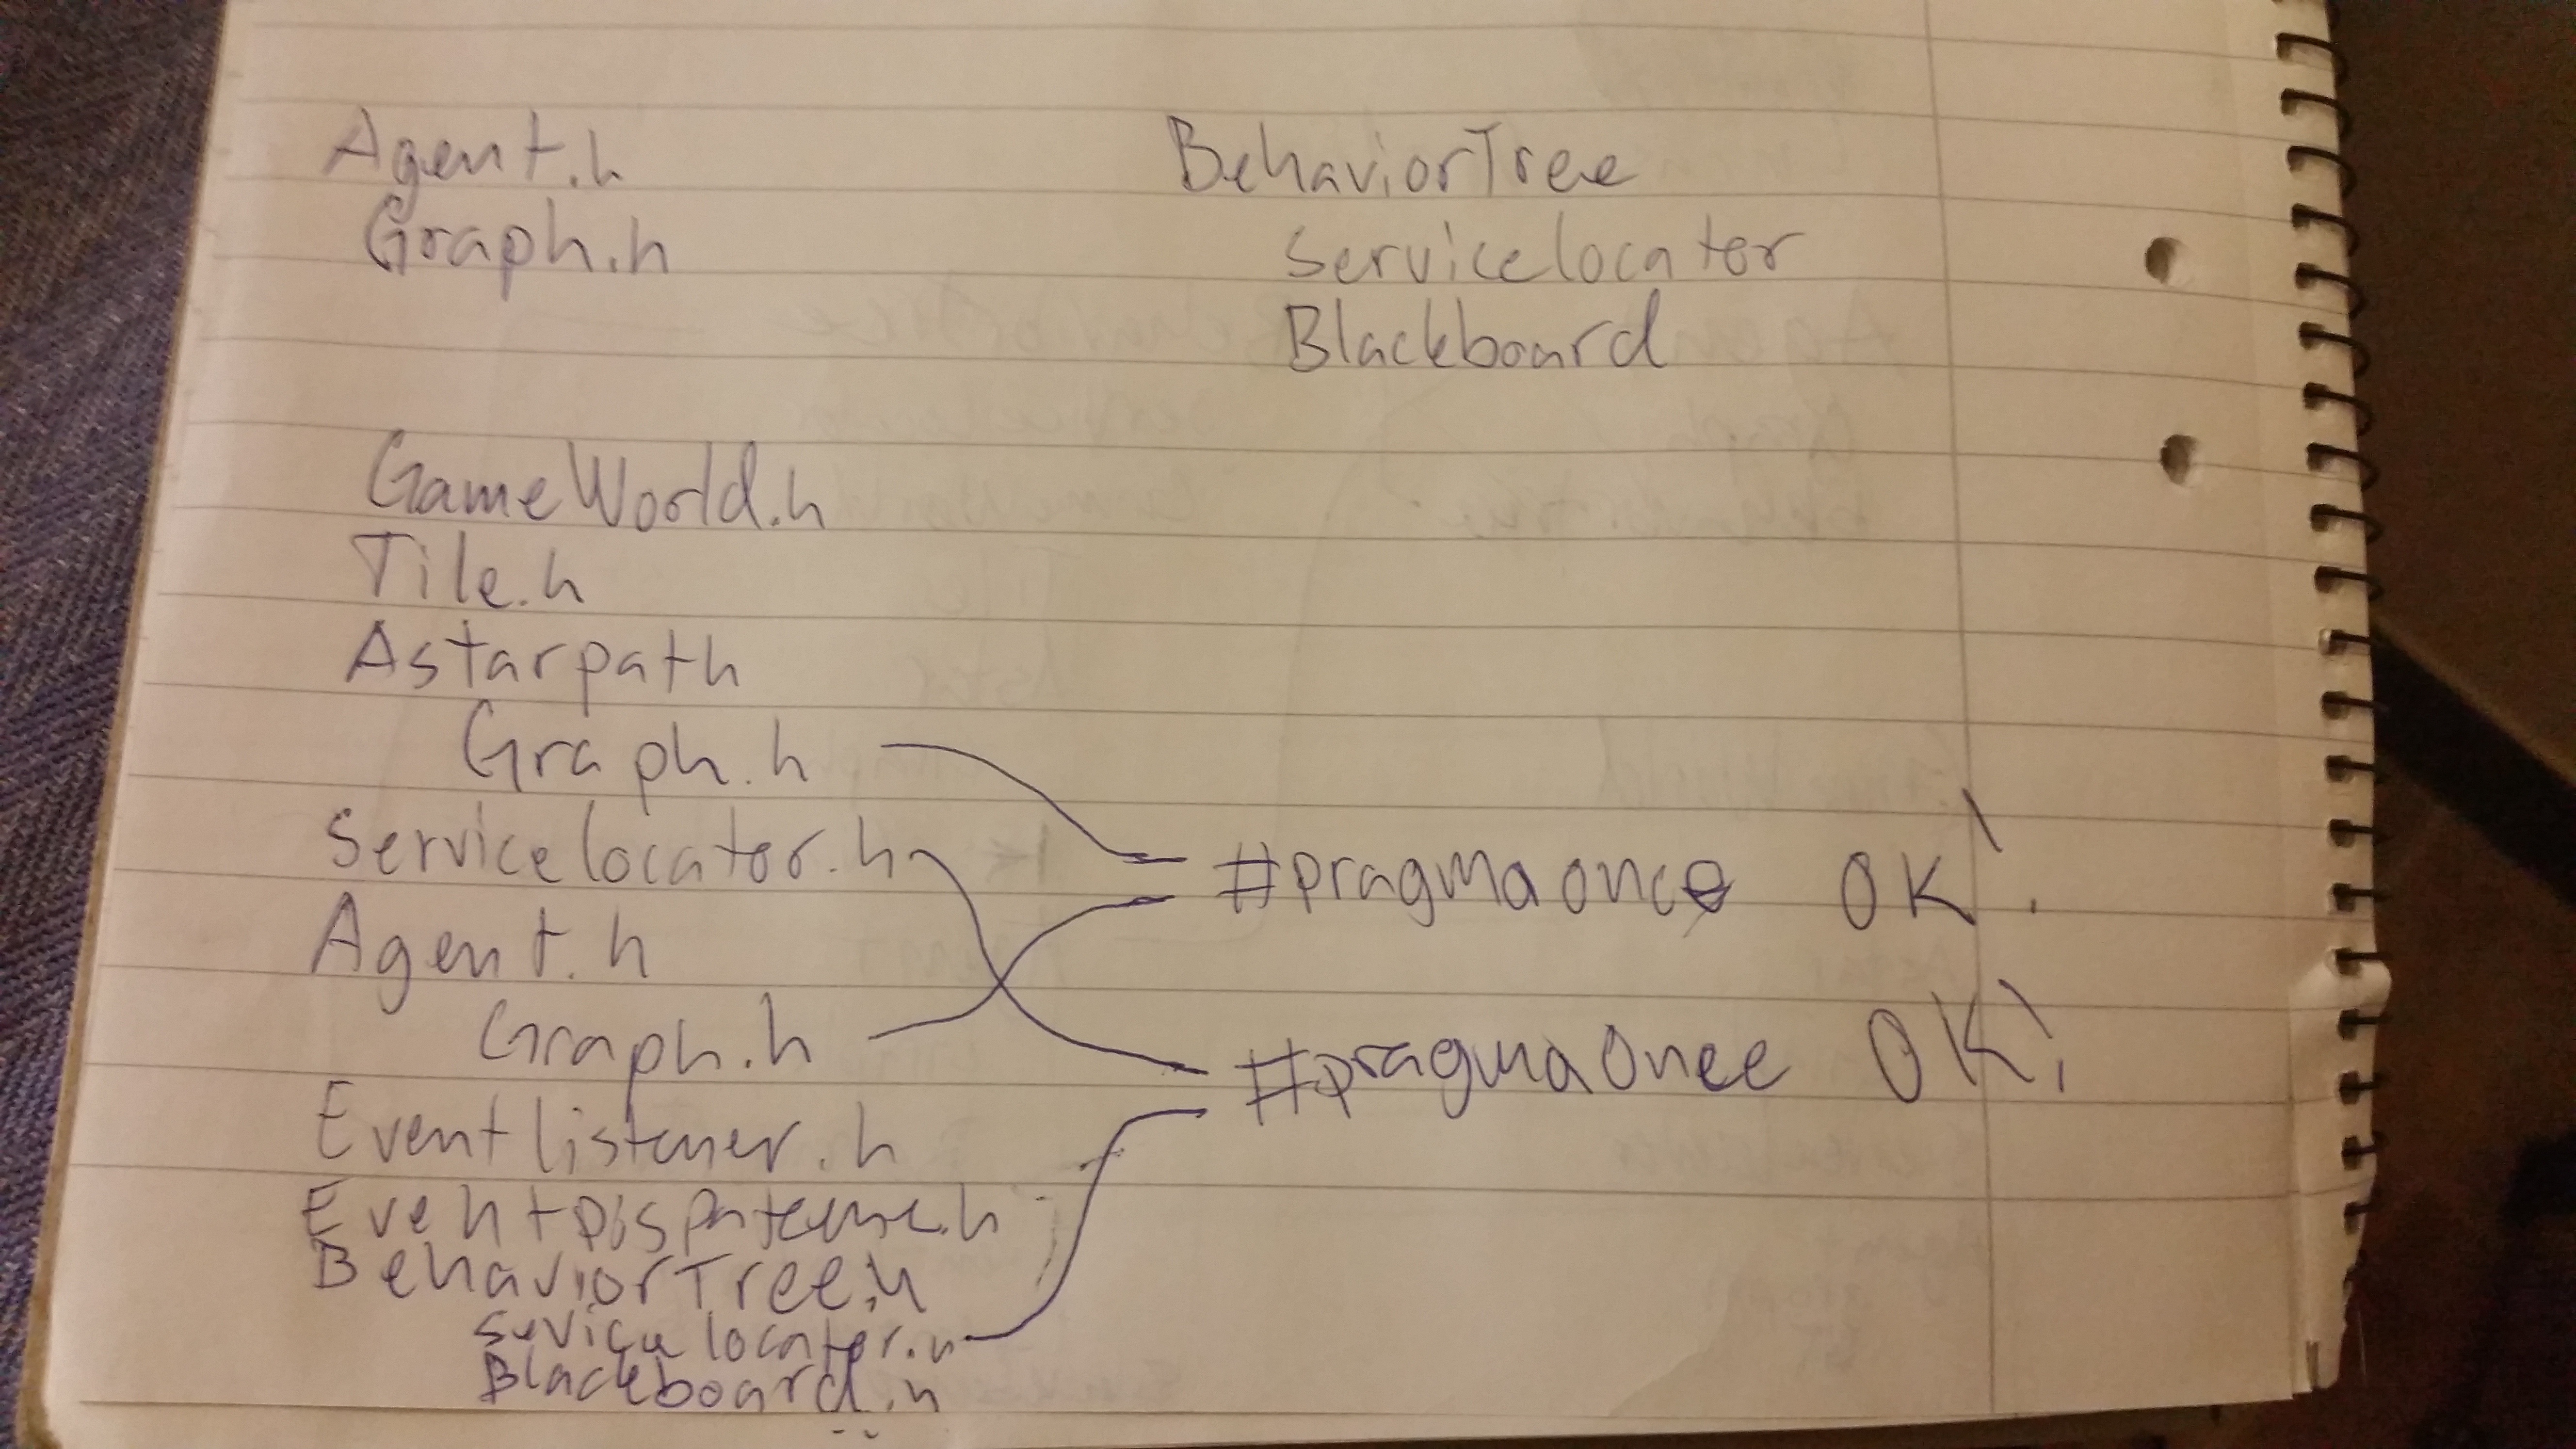 Agent.h
Graph.h
BehaviorTree
Servicelocator
Blackboard
GameWorld.h
Tile.h
Astarpath
Graph.h
Servicelocator.h
Agent.h
Graph.h
Eventlistener.h
BehaviorTree.h
Sevice locator.h
Blackboard.h
#pragma once OK!
#pragma once OK!